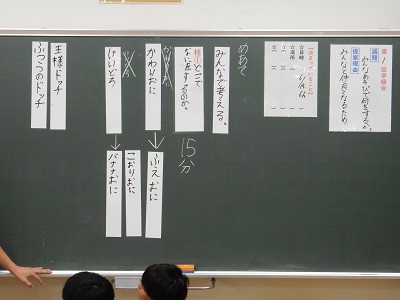 第1回学級会
議題
みんなあそびで何をするか。
提案理由
みんなと仲良くなるため
【決まっていること】
☆日時
☆場所
めあて
みんなで考える。
柱①どこで
なにをするのか。
15分
かわりおに
けいどろ
王様ドッチ
ふつうのドッチ
ふえおに
こおりおに
バナナおに